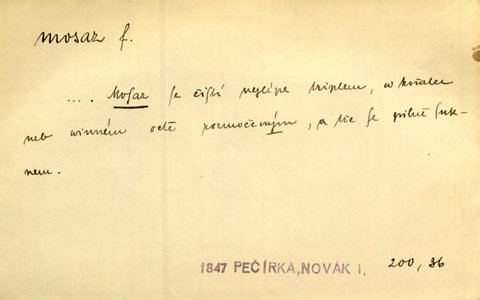 mosaz f.
.... Mosaz se čistí nejlépe triplem, w kořalce
neb winném octě rozmočeným, a tře se pilně suk-
nem.
1847 PEČÍRKA, NOVÁK I, 200, 36